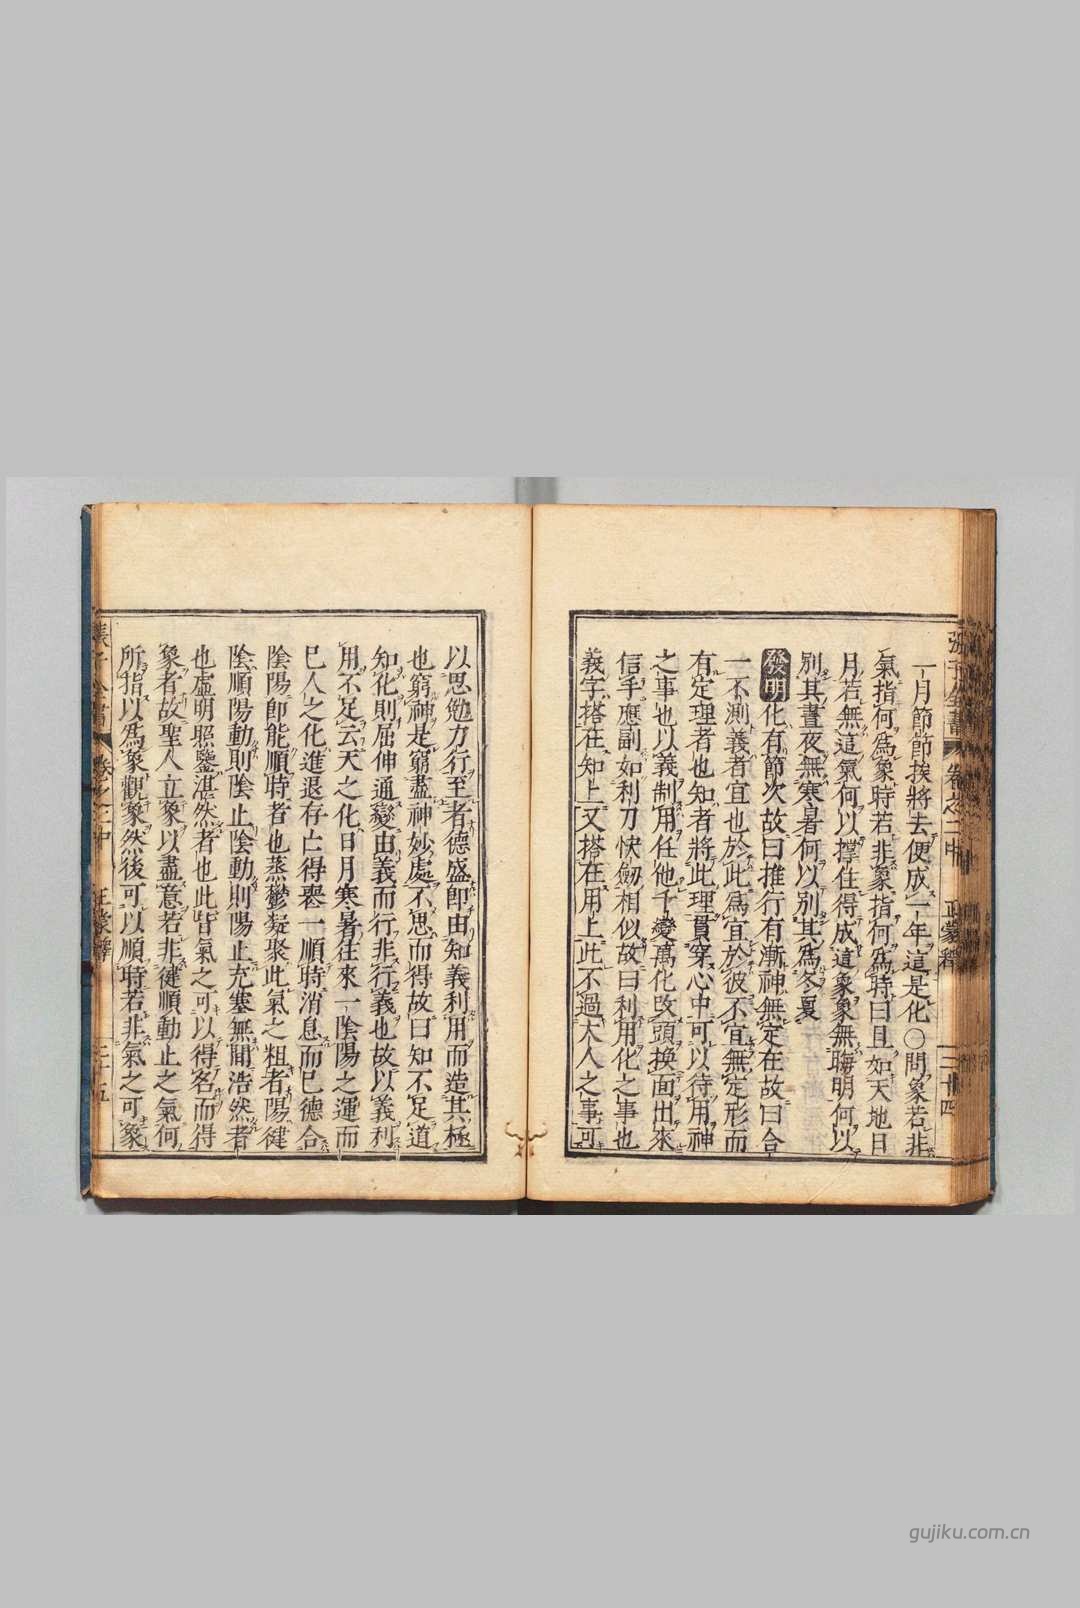 張子全書 卷之二中 正蒙釋 三十四
一月節節挨將去便成一年這是化○問象若非
氣指何爲象時若非象指何爲時曰且如天地日
月若無這氣何以撑住得成這象象無晦明何以
別其晝夜無寒暑何以別其爲冬夏
發明化有節次故曰推行有漸神無定在故曰合
一不測義者宜也於此爲宜於彼不宜無定形而
有定理者也知者將此理貫穿心中可以待用神
之事也以義制用任他千變萬化改頭換面出來
信手應副如利刀快劔相似故曰利用化之事也
義字搭在知上又搭在用上此不過大人之事可
以思勉力行至者德盛卽由知義利用而造其極
也窮神是窮盡神妙處不思而得故曰知不足道
知化則屈伸通變由義而行非行義也故以義利
用不足云天之化日月寒暑往來一陰陽之運而
巳人之化進退存亡得喪一順時消息而巳德合
陰陽卽能順時者也蒸鬱凝聚此氣之粗者陽健
陰順陽動則陰止陰動則陽止充塞無間浩然者
也虛明照鑒湛然者也此皆氣之可以得名而得
象者故聖人立象以盡意若非健順動止之氣何
所指以爲象觀象然後可以順時若非氣之可象
張子全書 卷之二中 正蒙釋 三十五
gujiku.com.cn